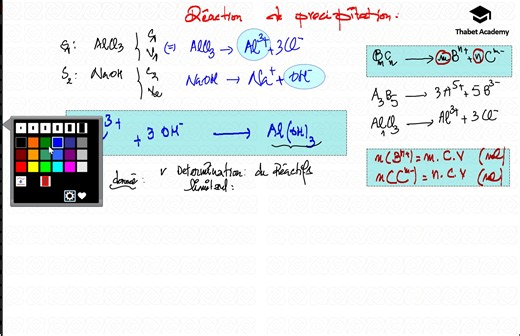 Réaction de précipitation:
Thabet Academy
S1: AlCl3 { C1 V1 (=) AlCl3 → Al3+ + 3Cl-
S2: NaOH { C2 V2 NaOH → Na+ + OH-
BmCn → mBn+ + nCm-
A3B5 → 3A5+ + 5B3-
AlCl3 → Al3+ + 3Cl-
3+ + 3OH- → Al(OH)3
n(Bn+) = m.C.V (mol)
n(Cm-) = n.C.V (mol)
donné: v Determination du Réactifs
limitant: